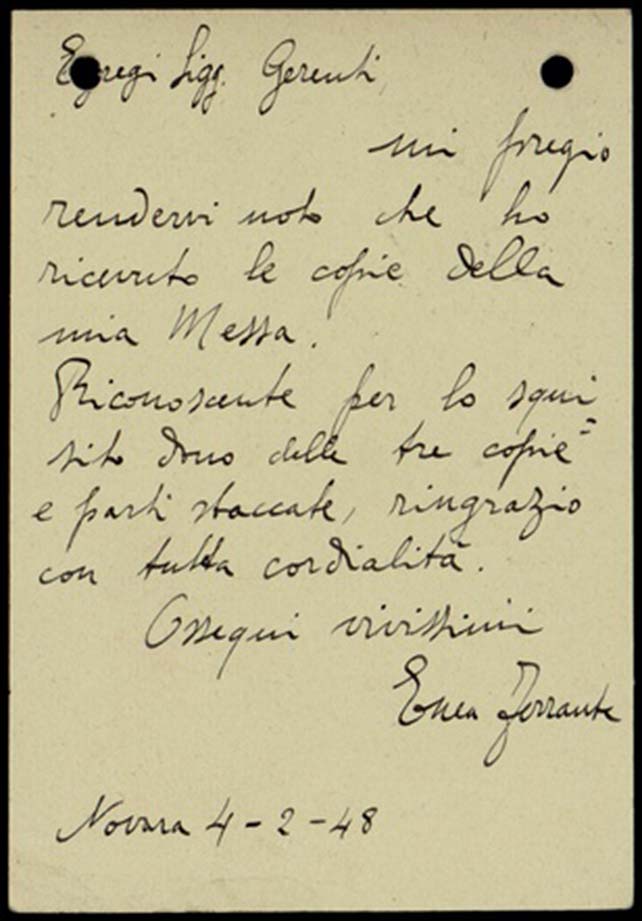 Egregi Sigg. Gerenti,
mi pregio
rendervi noto che ho
ricevuto le copie della
mia Messa.
Riconoscente per lo squi=
sito dono delle tre copie
e parti staccate, ringrazio
con tutta cordialità.
Ossequi vivissimi
Enea Ferrante
Novara 4-2-48